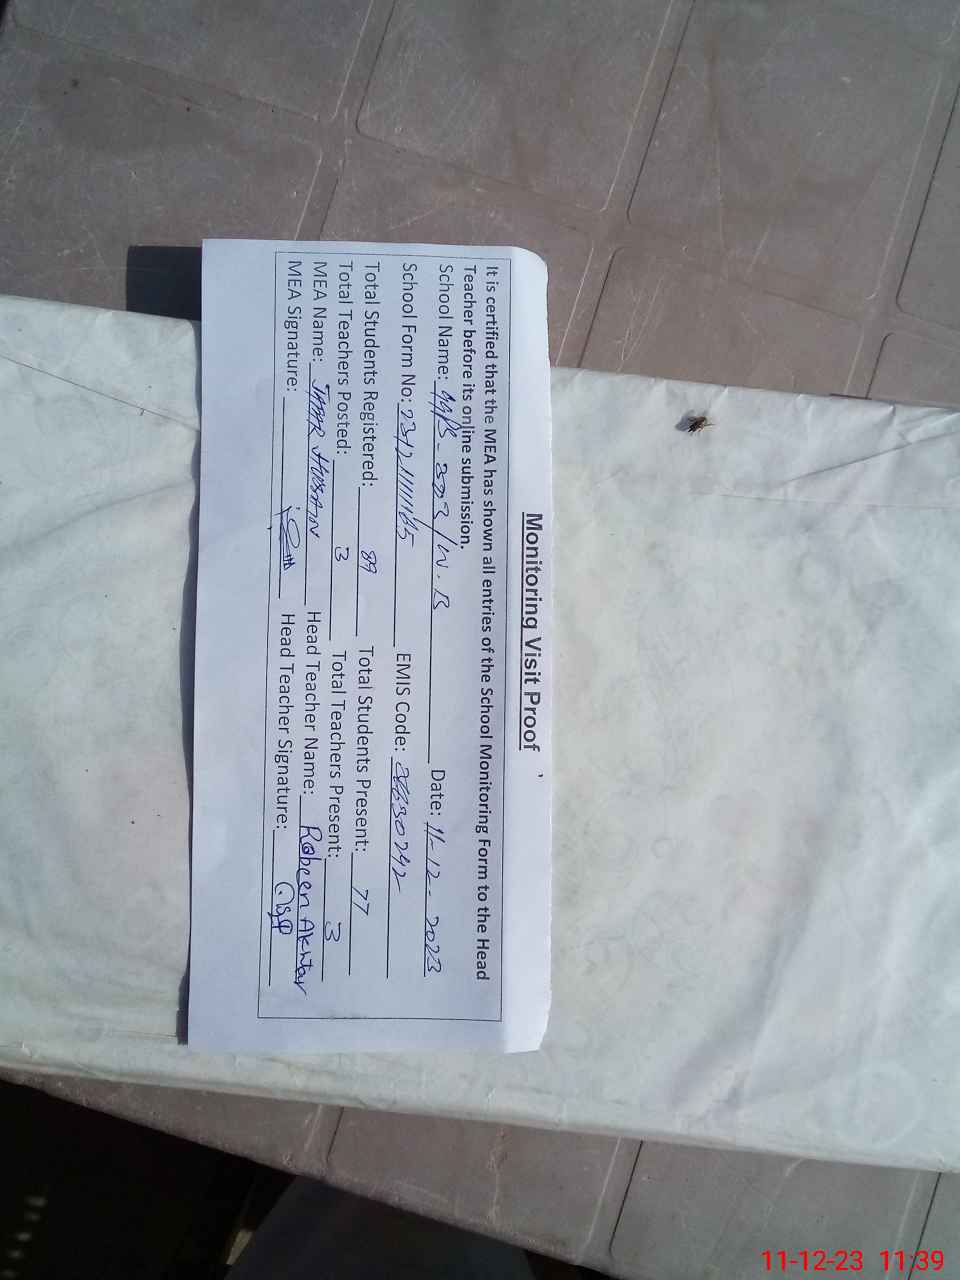 Monitoring Visit Proof
It is certified that the MEA has shown all entries of the School Monitoring Form to the Head
Teacher before its online submission.
School Name: GGPS - 323/W.B Date: 11-12-2023
School Form No: EMIS Code:
Total Students Registered: 89 Total Students Present: 77
Total Teachers Posted: 3 Total Teachers Present: 3
MEA Name: Head Teacher Name: Robeen Akhtar
MEA Signature: Head Teacher Signature:
11-12-23 11:39